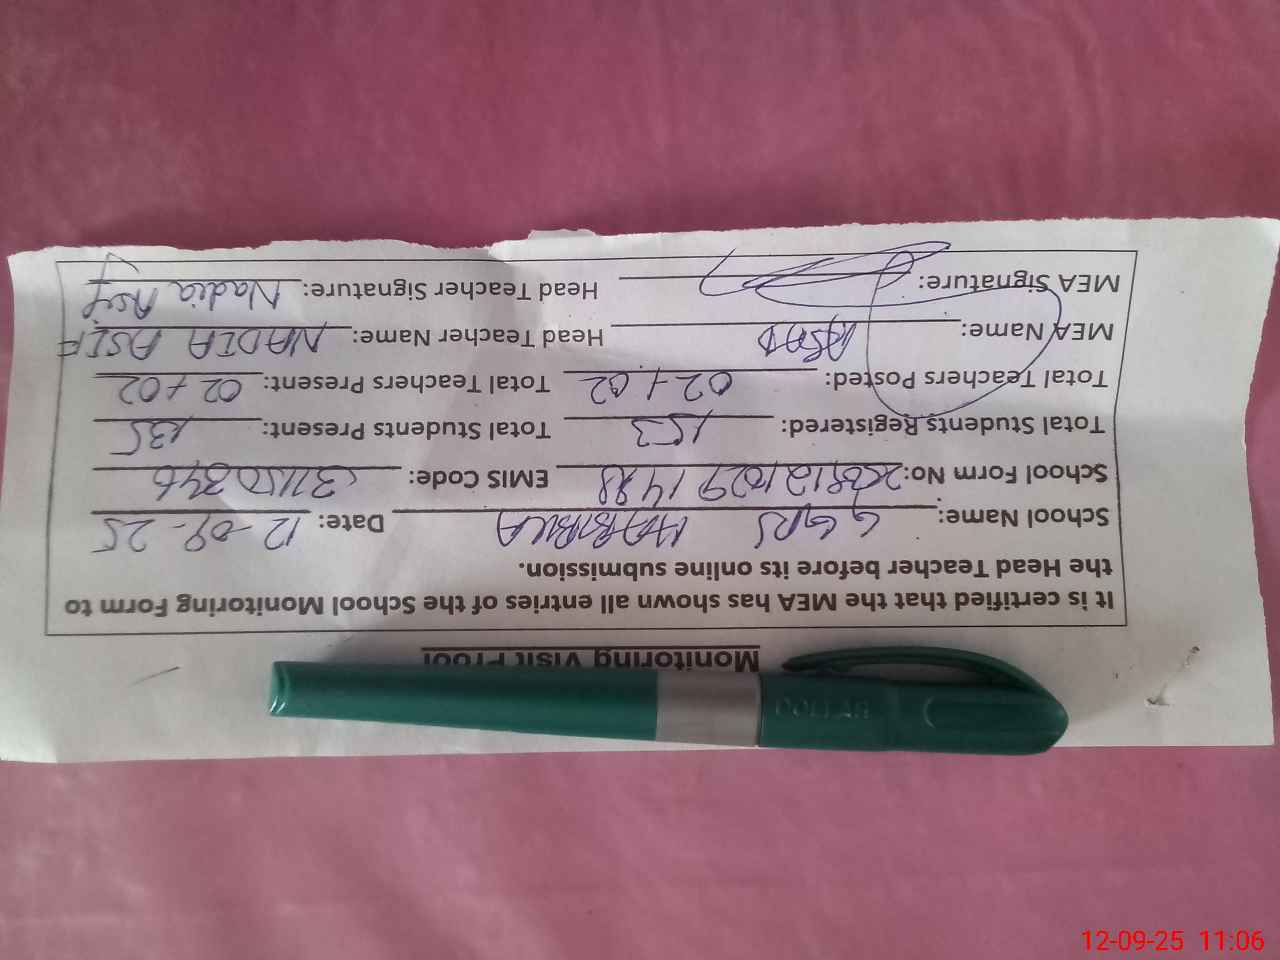 Monitoring Visit Proof
It is certified that the MEA has shown all entries of the School Monitoring Form to
the Head Teacher before its online submission.
School Name: GGPS HABIBULA Date: 12-09-25
School Form No: EMIS Code: 31150346
Total Students Registered: 153 Total Students Present: 135
Total Teachers Posted: 02+02 Total Teachers Present: 02+02
MEA Name: ASAD Head Teacher Name: NADIA ASIF
MEA Signature: Head Teacher Signature: Nadia Asif
12-09-25 11:06